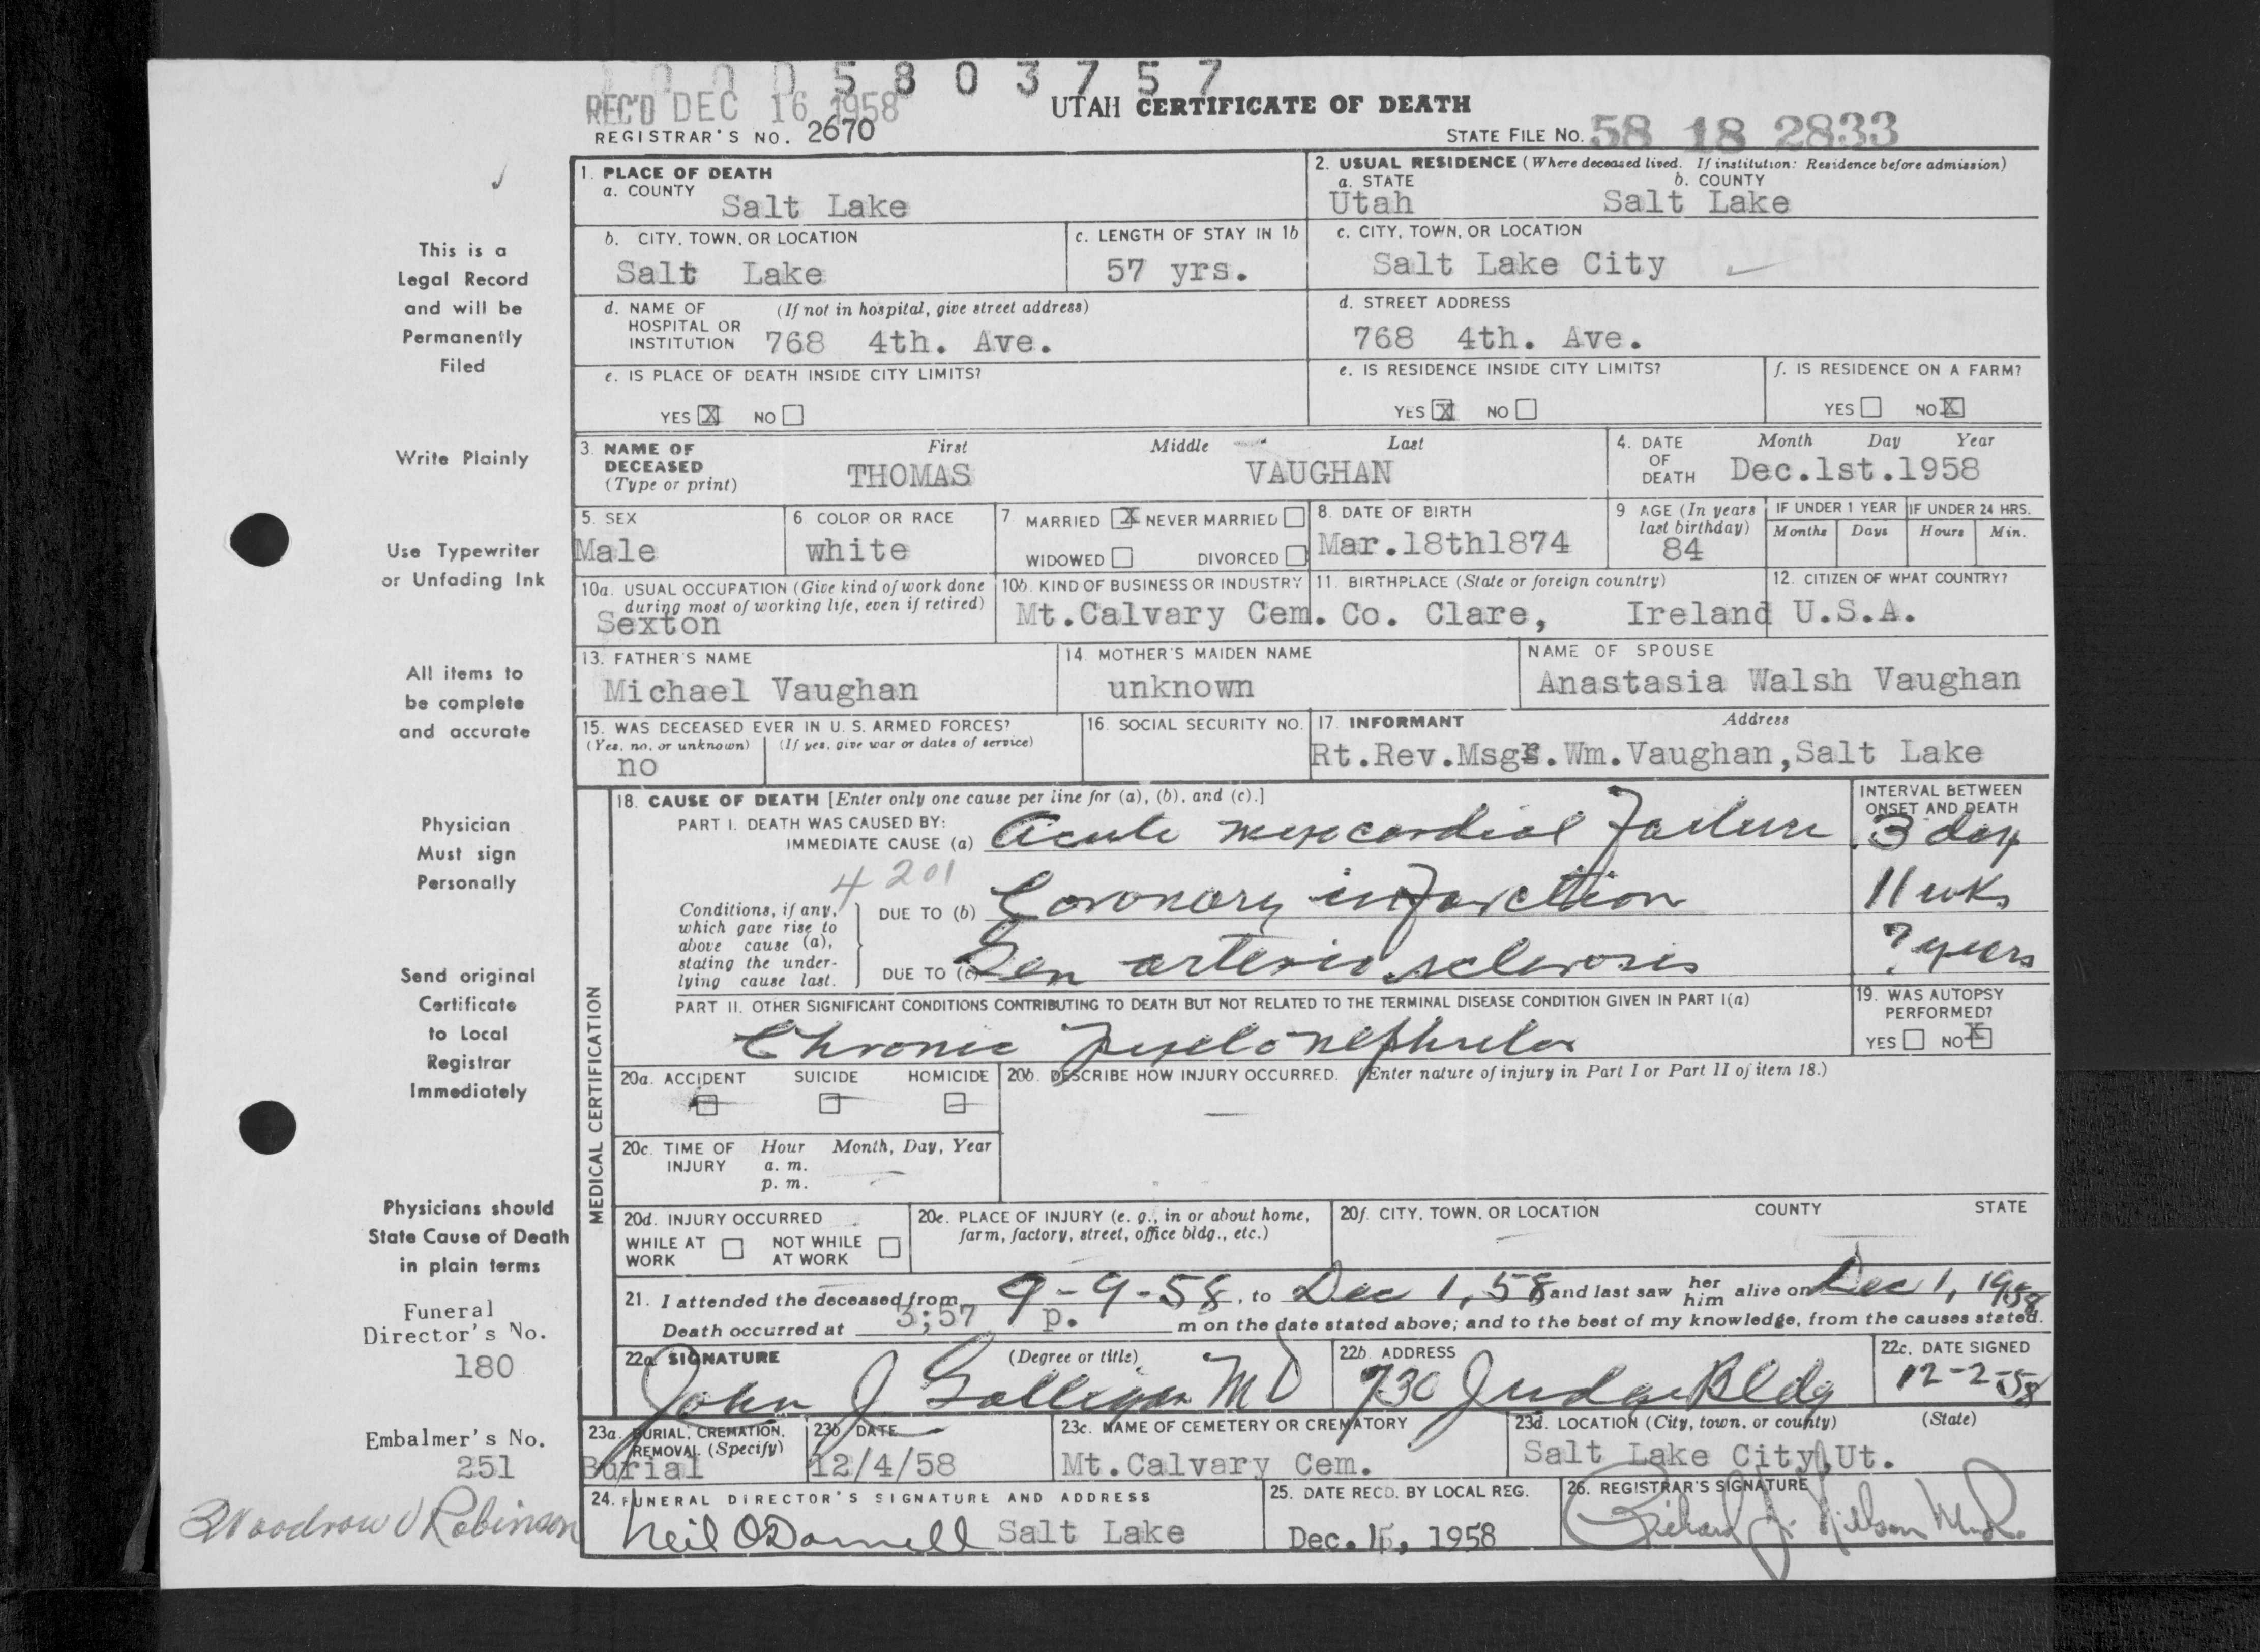 5 8 0 3 7 5 7
REC'D DEC 16 1958
UTAH CERTIFICATE OF DEATH
REGISTRAR'S NO. 2670
STATE FILE NO. 58 18 2833
This is a
Legal Record
and will be
Permanently
Filed
Write Plainly
Use Typewriter
or Unfading Ink
All items to
be complete
and accurate
Physician
Must sign
Personally
Send original
Certificate
to Local
Registrar
Immediately
Physicians should
State Cause of Death
in plain terms
Funeral
Director's No.
180
Embalmer's No.
251
Woodrow D Robinson
1. PLACE OF DEATH
a. COUNTY
Salt Lake
2. USUAL RESIDENCE (Where deceased lived. If institution: Residence before admission)
a. STATE b. COUNTY
Utah Salt Lake
b. CITY, TOWN, OR LOCATION
Salt Lake
c. LENGTH OF STAY IN 1b
57 yrs.
c. CITY, TOWN, OR LOCATION
Salt Lake City
d. NAME OF (If not in hospital, give street address)
HOSPITAL OR
INSTITUTION 768 4th. Ave.
d. STREET ADDRESS
768 4th. Ave.
e. IS PLACE OF DEATH INSIDE CITY LIMITS?
YES X NO
e. IS RESIDENCE INSIDE CITY LIMITS?
YES X NO
f. IS RESIDENCE ON A FARM?
YES NO X
3. NAME OF DECEASED
(Type or print)
First Middle Last
THOMAS VAUGHAN
4. DATE OF DEATH
Month Day Year
Dec.1st.1958
5. SEX
Male
6 COLOR OR RACE
white
7 MARRIED X NEVER MARRIED
WIDOWED DIVORCED
8. DATE OF BIRTH
Mar.18th1874
9 AGE (In years
last birthday)
84
IF UNDER 1 YEAR
Months Days
IF UNDER 24 HRS.
Hours Min.
10a. USUAL OCCUPATION (Give kind of work done
during most of working life, even if retired)
Sexton
10b. KIND OF BUSINESS OR INDUSTRY
Mt.Calvary Cem.
11. BIRTHPLACE (State or foreign country)
Co. Clare, Ireland
12. CITIZEN OF WHAT COUNTRY?
U.S.A.
13. FATHER'S NAME
Michael Vaughan
14. MOTHER'S MAIDEN NAME
unknown
NAME OF SPOUSE
Anastasia Walsh Vaughan
15. WAS DECEASED EVER IN U. S. ARMED FORCES?
(Yes, no, or unknown) (If yes, give war or dates of service)
no
16. SOCIAL SECURITY NO.
17. INFORMANT Address
Rt.Rev.Msgr.Wm.Vaughan,Salt Lake
MEDICAL CERTIFICATION
18. CAUSE OF DEATH [Enter only one cause per line for (a), (b), and (c).]
INTERVAL BETWEEN
ONSET AND DEATH
PART I. DEATH WAS CAUSED BY:
IMMEDIATE CAUSE (a) Acute myocardial Failure 3 days
4201
Conditions, if any,
which gave rise to
above cause (a),
stating the under-
lying cause last.
DUE TO (b) Coronary infarction 11 wks
DUE TO (c) Gen arteriosclerosis ? years
PART II. OTHER SIGNIFICANT CONDITIONS CONTRIBUTING TO DEATH BUT NOT RELATED TO THE TERMINAL DISEASE CONDITION GIVEN IN PART I(a)
Chronic Pyelonephritis
19. WAS AUTOPSY
PERFORMED?
YES NO X
20a. ACCIDENT SUICIDE HOMICIDE
20b. DESCRIBE HOW INJURY OCCURRED. (Enter nature of injury in Part I or Part II of item 18.)
20c. TIME OF INJURY
Hour Month, Day, Year
a. m.
p. m.
20d. INJURY OCCURRED
WHILE AT WORK
NOT WHILE AT WORK
20e. PLACE OF INJURY (e. g., in or about home,
farm, factory, street, office bldg., etc.)
20f. CITY, TOWN, OR LOCATION COUNTY STATE
21. I attended the deceased from 9-9-58, to Dec 1, 58 and last saw her him alive on Dec 1, 1958
Death occurred at 3;57 p. m on the date stated above; and to the best of my knowledge, from the causes stated.
22a SIGNATURE (Degree or title)
John J Galligan MD
22b. ADDRESS
730 Judge Bldg
22c. DATE SIGNED
12-2-58
23a. BURIAL, CREMATION,
REMOVAL (Specify)
Burial
23b DATE
12/4/58
23c. NAME OF CEMETERY OR CREMATORY
Mt.Calvary Cem.
23d. LOCATION (City, town, or county) (State)
Salt Lake City,Ut.
24. FUNERAL DIRECTOR'S SIGNATURE AND ADDRESS
Neil O'Donnell Salt Lake
25. DATE RECD. BY LOCAL REG.
Dec. 15, 1958
26. REGISTRAR'S SIGNATURE
Richard J. Nilson